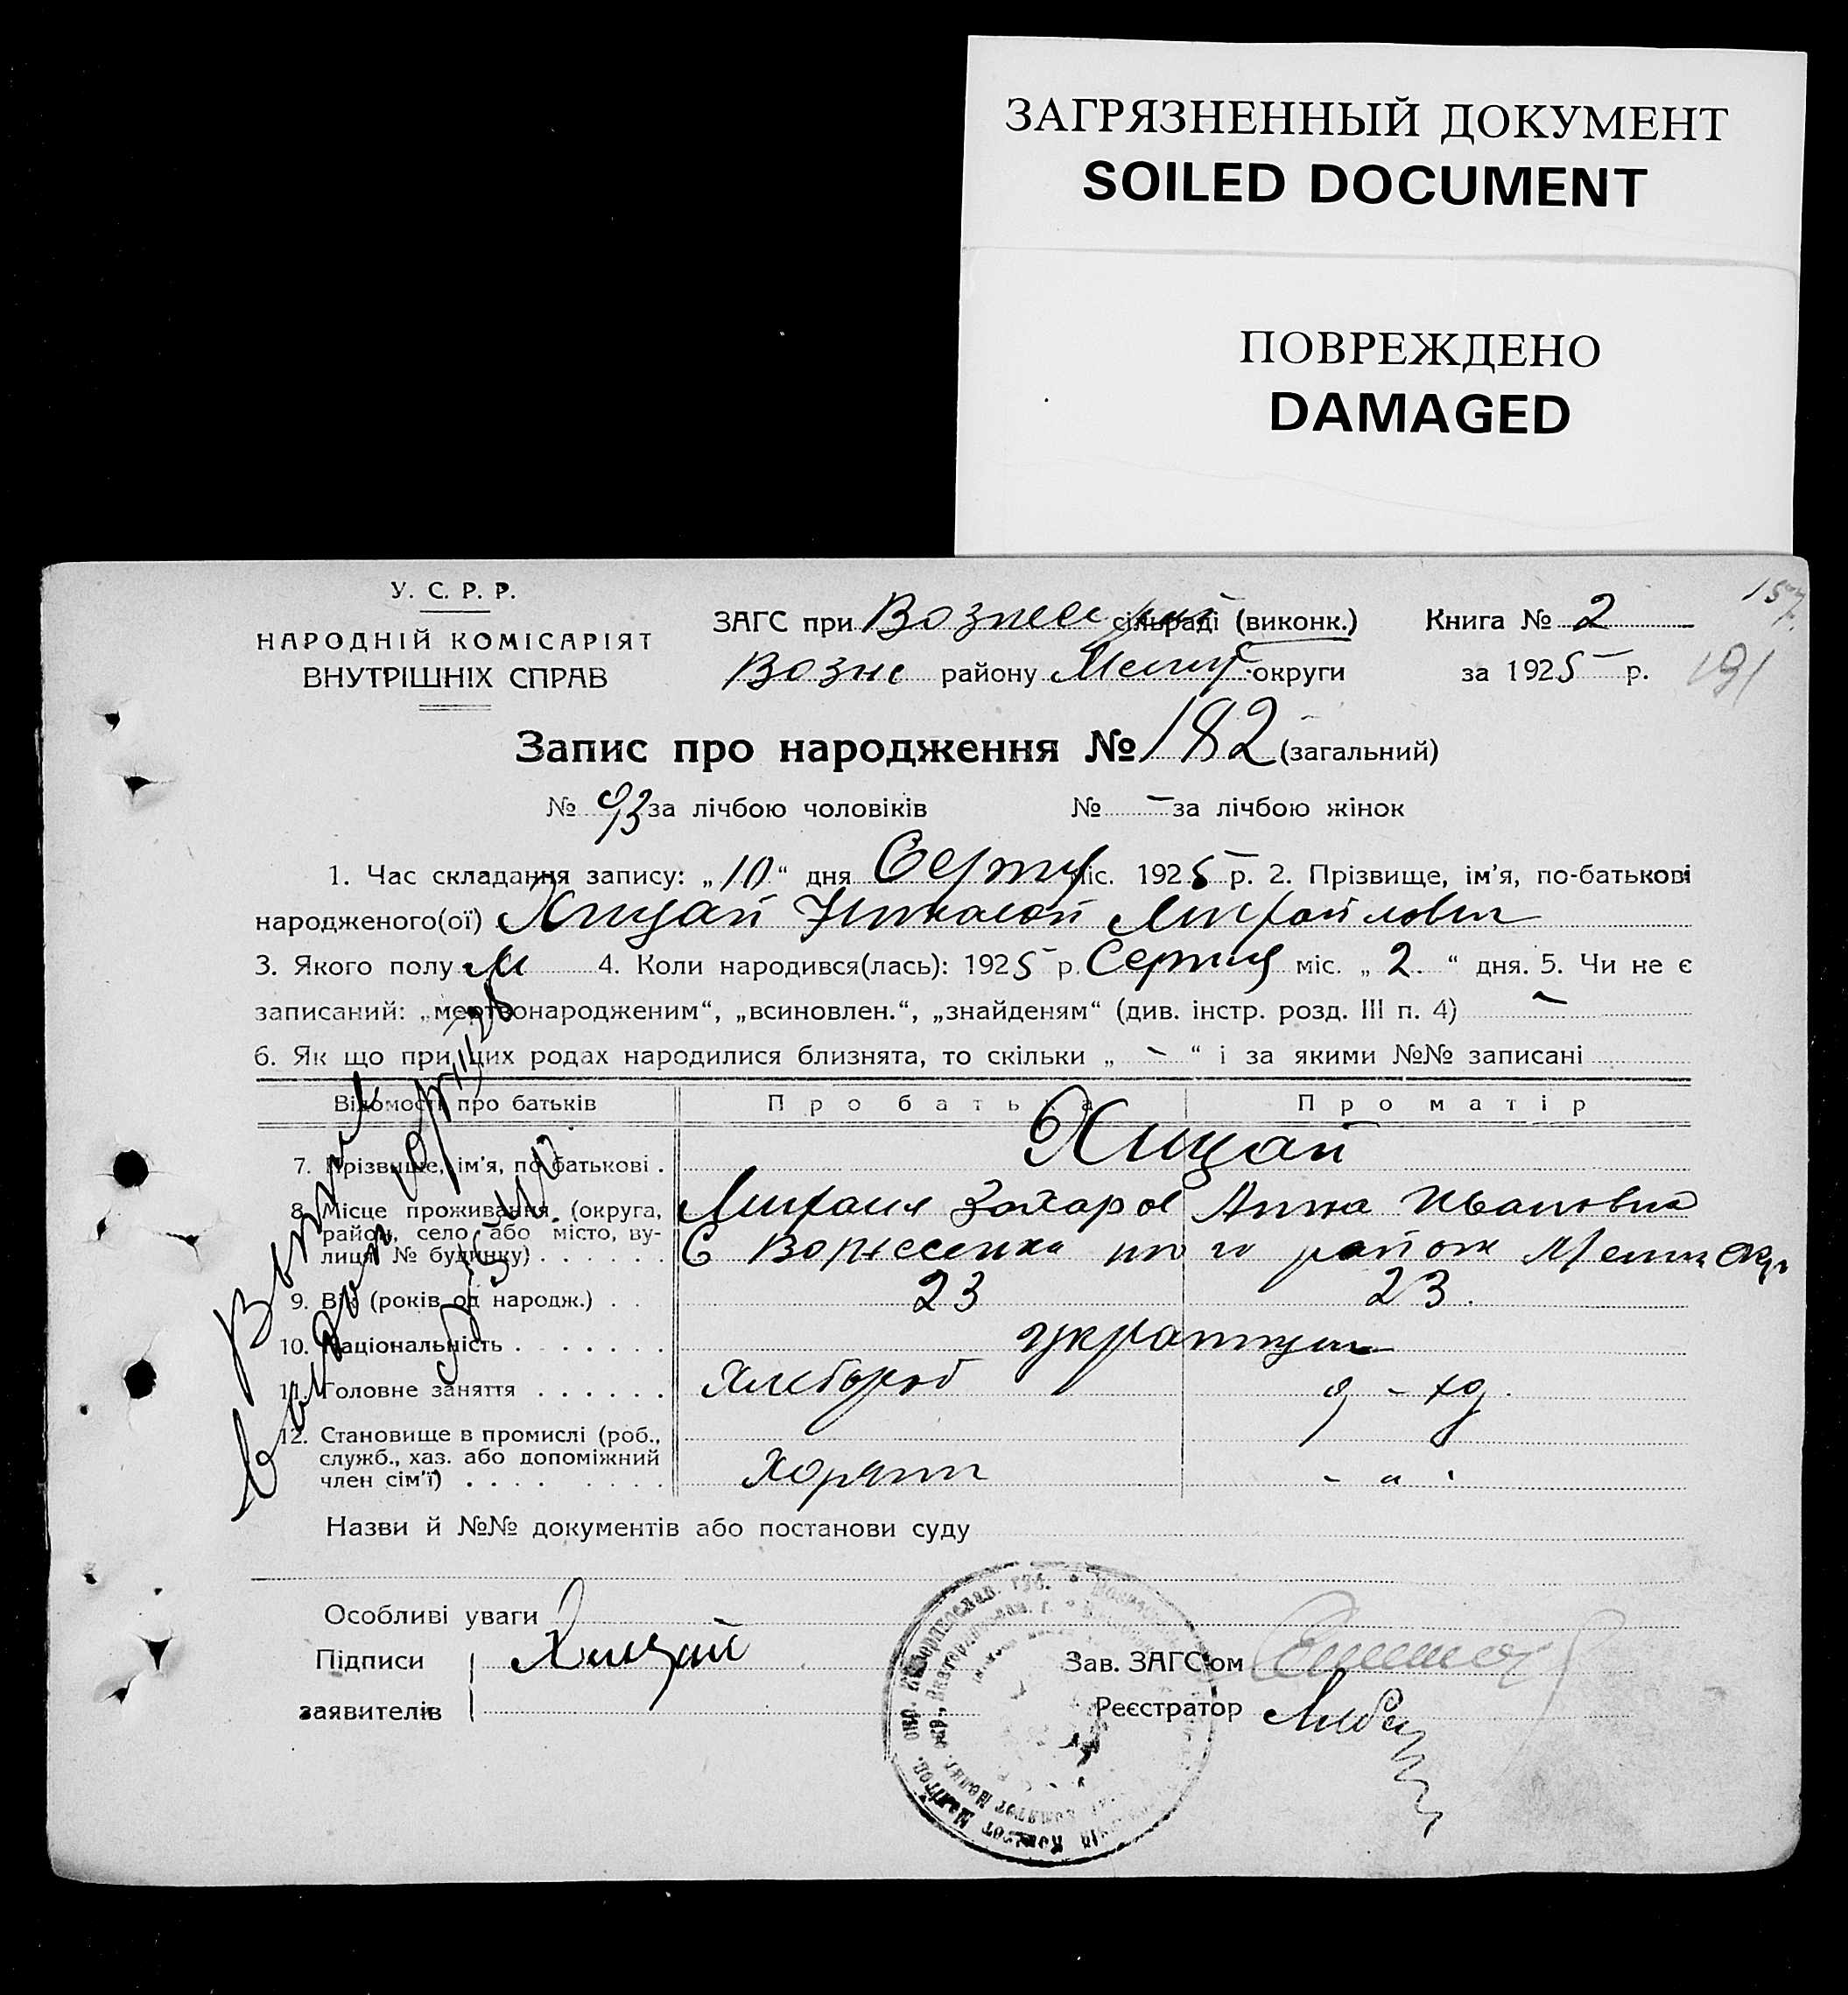 ЗАГРЯЗНЕННЫЙ ДОКУМЕНТ
SOILED DOCUMENT
ПОВРЕЖДЕНО
DAMAGED
157.
У. С. Р. Р.
НАРОДНІЙ КОМІСАРІЯТ
ВНУТРІШНІХ СПРАВ
ЗАГС при сільраді (виконк.) Книга № 2
Возне району округи за 1925 р. 191
Запис про народження № 182 (загальний)
№ 93 за лічбою чоловіків № – за лічбою жінок
1. Час складання запису: „10“ дня Серпня міс. 1925 р. 2. Прізвище, ім'я, по-батькові
народженого(ої) Хицай Николай Михайлович
3. Якого полу М 4. Коли народився(лась): 1925 р. Серпня міс. „ 2 “ дня. 5. Чи не є
записаний: „мертвонародженим“, „всиновлен.“, „знайденям“ (див. інстр. розд. III п. 4) –
6. Як що при цих родах народилися близнята, то скільки „ – “ і за якими №№ записані
Відомості про батьків Про батька Про матір
7. Прізвище, ім'я, по батькові . Хицай
8. Місце проживання (округа, район, село або місто, вулиця № будинку) . . . . . .
Михаил Захаров Анна Ивановна
С Вознесенка того району Мелит Окр.
9. Вік (років од народж.) . . 23 23.
10. Національність . . . . . . . украинцы
11. Головне заняття . . . . . . Хлебороб
12. Становище в промислі (роб., служб., хаз. або допоміжний член сім'ї) . . . . . . . . - " -
Назви й №№ документів або постанови суду
Особливі уваги
Підписи Хицай Зав. ЗАГС'ом
заявителів Реєстратор